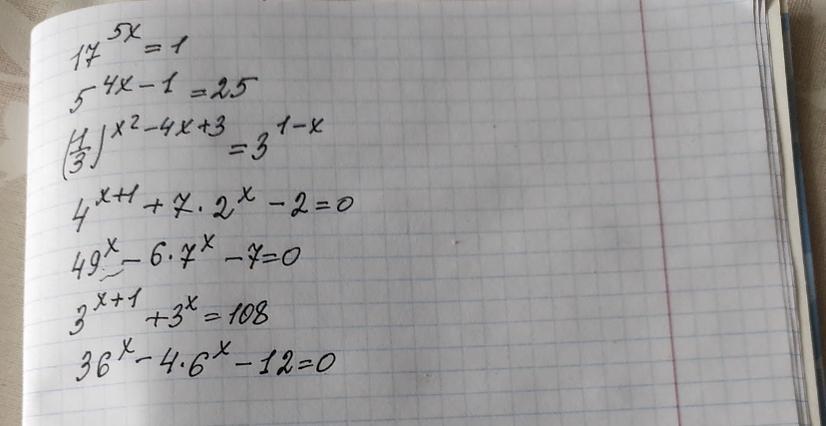 17^{5x} = 1
5^{4x-1} = 25
(1/3)^{x^2-4x+3} = 3^{1-x}
4^{x+1} + 7 · 2^x - 2 = 0
49^x - 6 · 7^x - 7 = 0
3^{x+1} + 3^x = 108
36^x - 4 · 6^x - 12 = 0